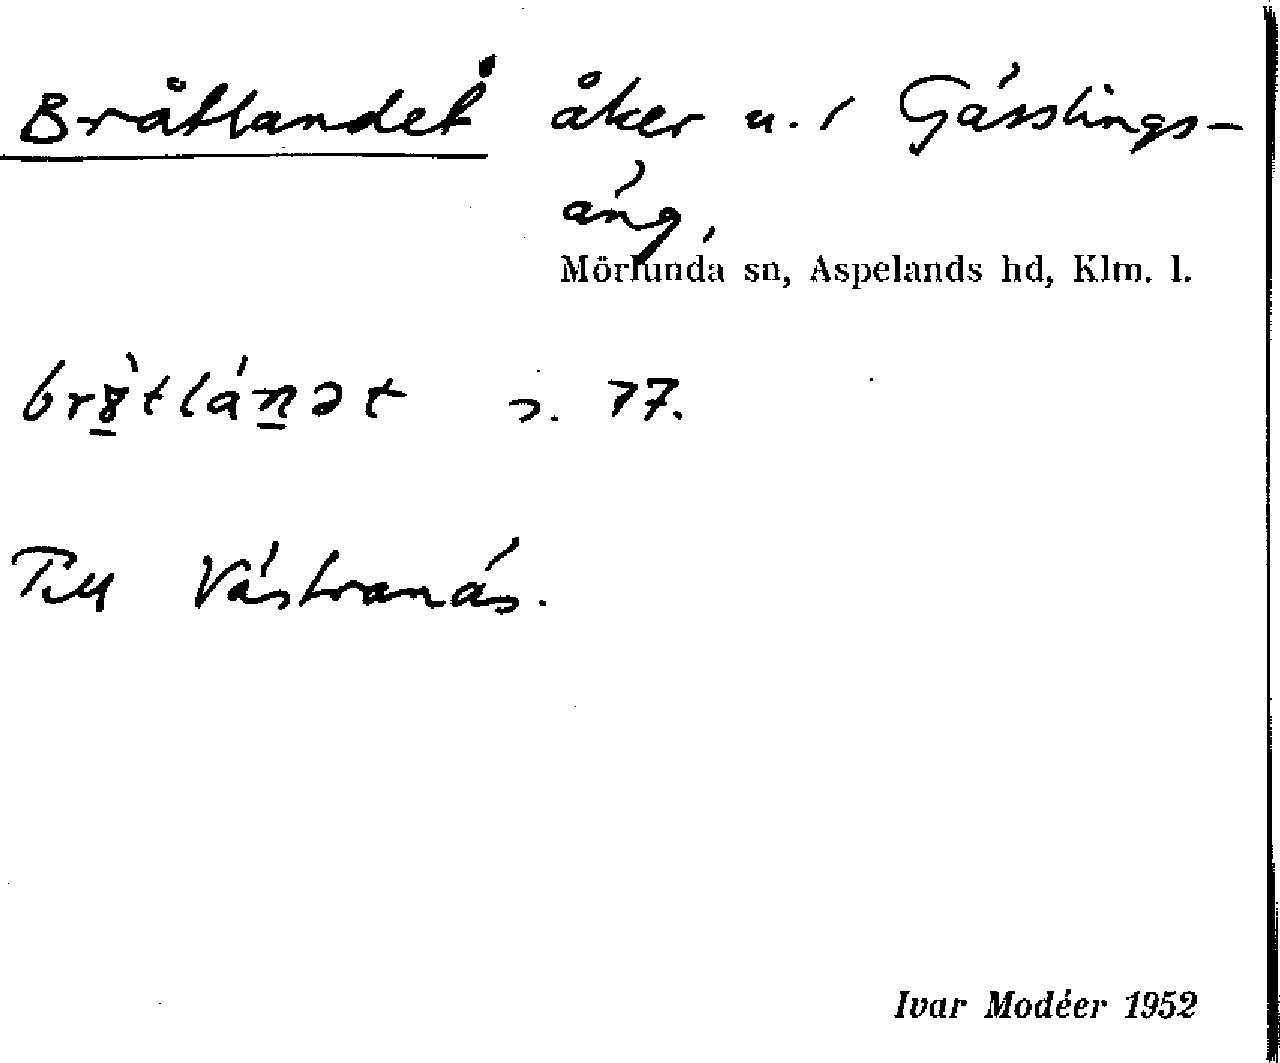 Bråtlandet åker u. / Gässlings-
äng,
Mörlunda sn, Aspelands hd, Klm. l.
s. 77.
Till Västranäs.
Ivar Modéer 1952